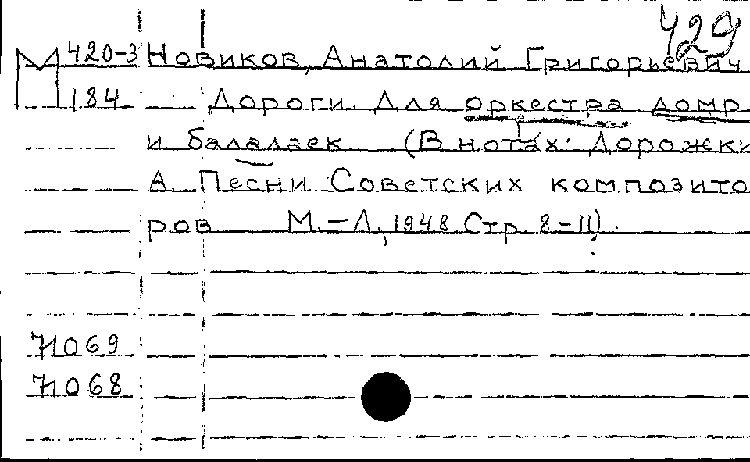 429
М 420-3 Новиков, Анатолий Григорьевич
184 Дороги. Для оркестра домр
и балалаек (В нотах: Дорожки
А Песни Советских композито
ров М.-Л, 1948 Стр. 8-11).
71069
71068